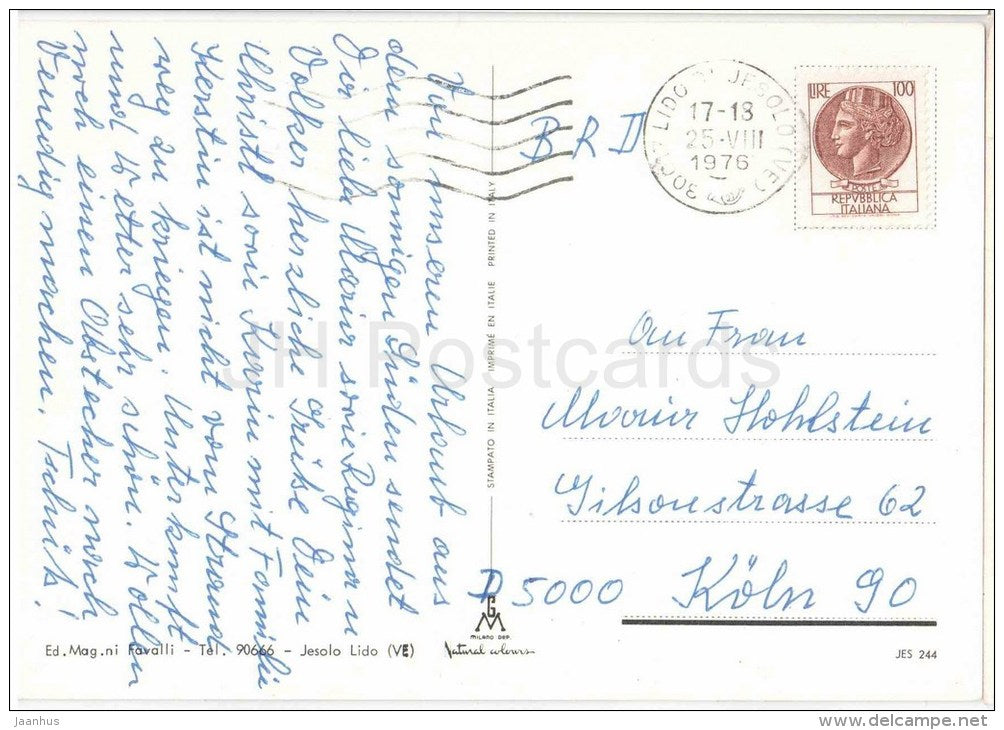 Von unserem Urlaub aus
dem sonnigen Süden sendet
Dir liebe Marie sowie Regina u
Volker herzliche Grüße Dein
Christl sowie Karin mit Familie
Kerstin ist nicht vom Strand
weg zu kriegen. Unterkunft
und Wetter sehr schön. Wollen
noch einen Abstecher nach
Venedig machen. Tschüß!
BRD
30017 LIDO DI JESOLO (VE)
17-18
25-VIII
1976
LIRE 100
POSTE
REPVBBLICA
ITALIANA
An Frau
Hohlstein
Gilsonstrasse 62
D 5000 Köln 90
STAMPATO IN ITALIA IMPRIMÉ EN ITALIE PRINTED IN ITALY
G M
MILANO DEP.
Ed. Mag.ni Favalli - Tel. 90666 - Jesolo Lido (VE)
Natural colours
JES 244
JH Postcards
Jaanhus
www.delcampe.net